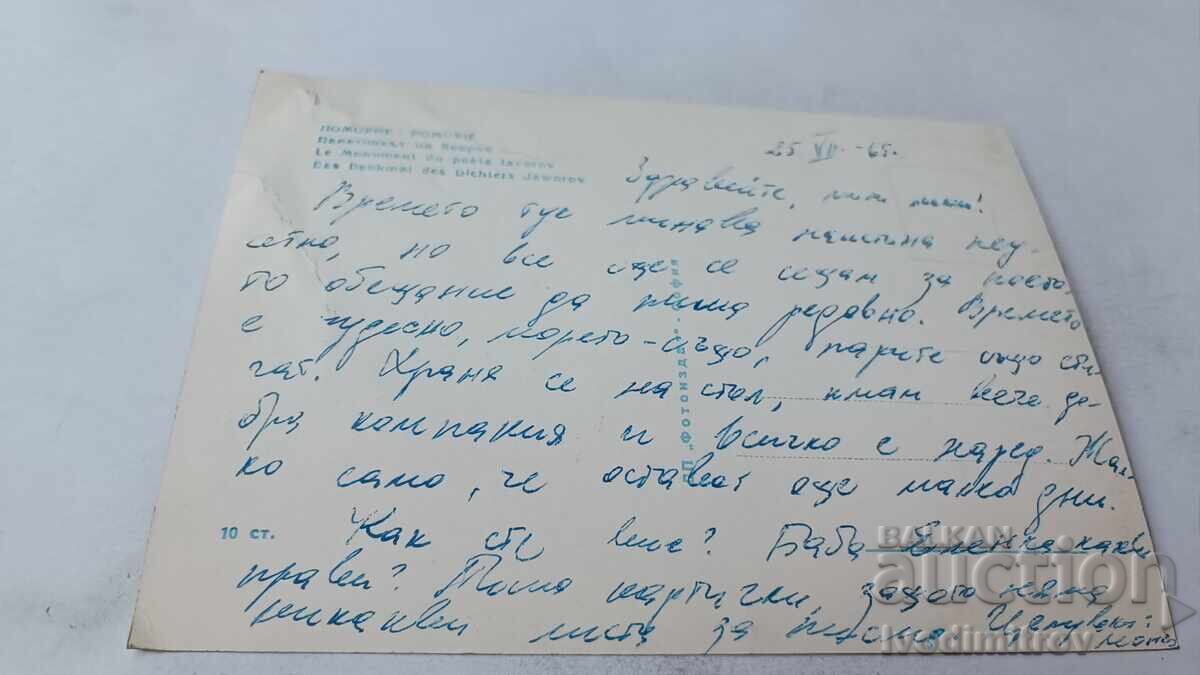 ПОМОРИЕ - POMORIE
Паметникът на Яворов
Le Monument du poète Iavorov
Das Denkmal des Dichters Jaworov
25 VII.-65.
Здравейте, мили мои!
Времето тук минава наистина неу-
сетно, но все още се сещам за моето
то обещание да пиша редовно. Времето
е чудесно, морето - също, парите също сти-
гат. Храня се на стол, имам вече до-
бра компания и всичко е наред. Жал-
ко само, че остават още малко дни.
Как сте вие? Баба какво
прави? Пиша картички, защото няма
никакви листа за писма. Целувки:
ДП „Фотоиздат" - София
10 ст.
BALKAN
auction
ivodimitrov